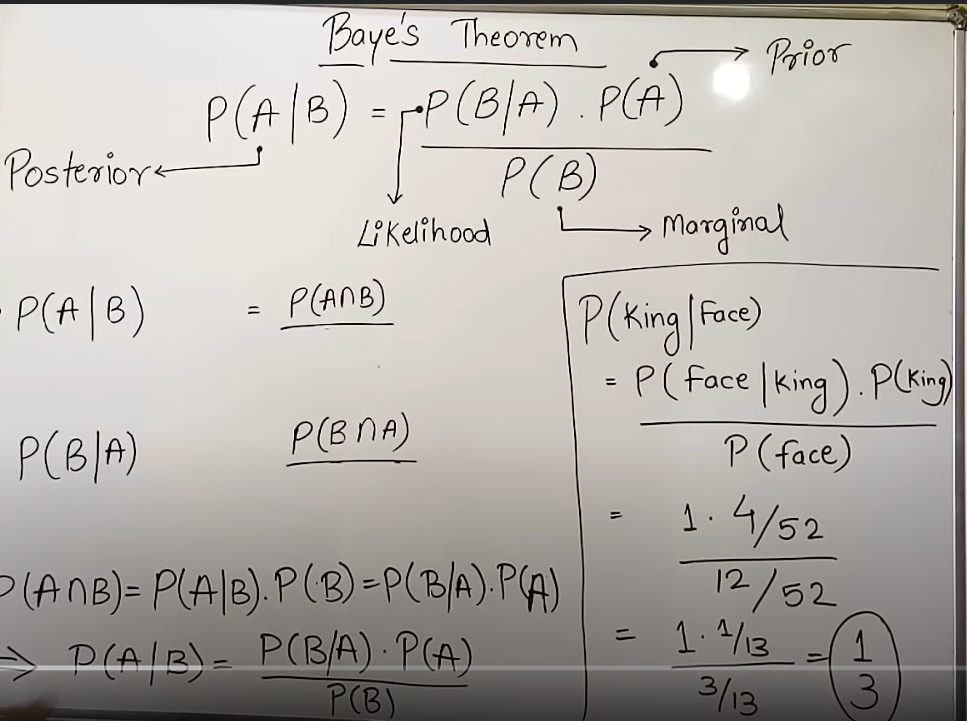 Baye's Theorem
P(A|B) = P(B|A) . P(A)
P(B)
Prior
Posterior
Likelihood
Marginal
P(A|B) = P(A∩B)
P(B|A) P(B∩A)
P(A∩B)= P(A|B). P(B)=P(B|A).P(A)
⇒ P(A|B)= P(B/A) . P(A)
P(B)
P(King|Face)
= P(face|king). P(King)
P(face)
= 1 . 4/52
12/52
= 1 . 1/13 = 1
3/13 3